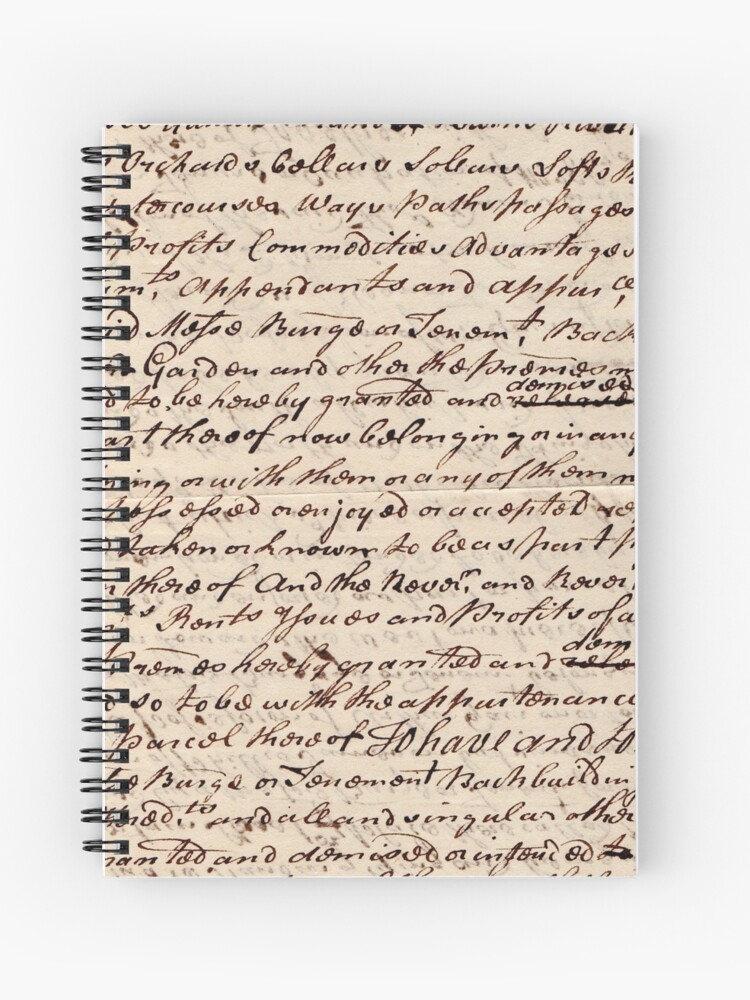 Orchards Cellars Sollars Lofts
Ways Paths passages
Profits Commodities Advantages
Appendants and appurces
Messe Burge or Tenemt, Back
Garden and other the Premes
demised
to be hereby granted and release
thereof now belonging or in any
or with them or any of them
possessed or enjoyed or accepted
taken or known to be as part
thereof And the Rever, and Rever
Rents Issues and Profits of
dem
Premes hereby granted and rele
so to be with the appurtenanc
Parcel thereof To have and to
Burge or Tenement Backbuildin
and all and singular other
anted and demised or intended to